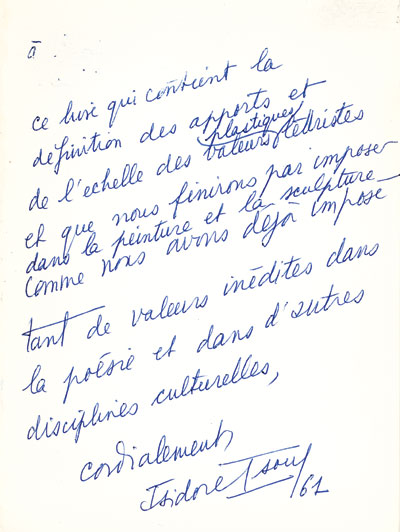 à
ce livre qui contient la
définition des apports et
de l'echelle des valeurs plastiques lettristes
et que nous finirons par imposer
dans la peinture et la sculpture
comme nous avons déjà imposé
tant de valeurs inédites dans
la poésie et dans d'autres
disciplines culturelles,
cordialement,
Isidore Isou
/61